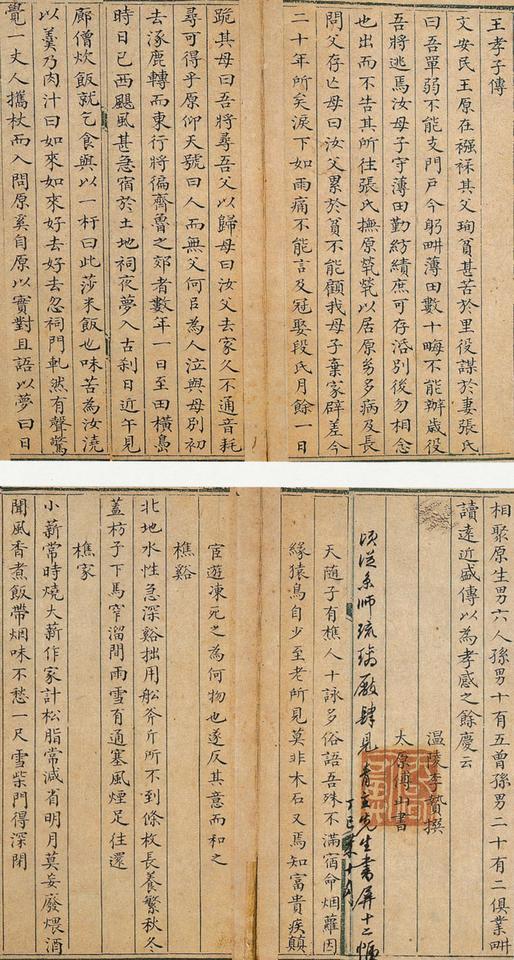 王孝子傳
文安民王原在襁褓其父珣貧甚苦於里役謀於妻張氏
曰吾單弱不能支門戶今躬畊薄田數十畮不能辦歲役
吾將逃焉汝母子守薄田勤紡績庶可存活別後勿相念
也出而不告其所往張氏撫原煢煢以居原多病及長
問父存亡母曰汝父累於貧不能顧我母子棄家辟差今
二十年所矣淚下如雨痛不能言及冠娶段氏月餘一日
跪其母曰吾將尋吾父以歸母曰汝父去家久不通音耗
尋可得乎原仰天號曰人而無父何㠯為人泣與母別初
去涿鹿轉而東行將徧齊魯之郊者數年一日至田橫島
時日已西颶風甚急宿於土地祠夜夢入古刹日近午見
廊僧炊飯就乞食與以一杆曰此莎米飯也味苦為汝澆
以羹乃肉汁曰如來如來好去好去忽祠門軋然有聲驚
覺一丈人攜杖而入問原奚自原以實對且語以夢曰日
相聚原生男六人孫男十有五曾孫男二十有二俱業畊
讀遠近盛傳以為孝感之餘慶云
温陵李贄撰
太原傅山書
頃從京師琉璃厰肆見青主先生書屏十二幅
丁巳十月
天隨子有樵人十詠多俗語吾殊不滿宿命烟蘿因
緣猿鳥自少至老所見莫非木石又焉知富貴疾顛
宦遊凍死之為何物也遂反其意而和之
樵谿
北地水性急深谿拙用船斧斤所不到條枚長養繁秋冬
蓋枋子下馬窄溜間雨雪有通塞風煙足往還
樵家
小薪常時燒大薪作家計松脂常減省明月莫妄廢煨酒
聞風香煮飯帶烟味不愁一尺雪柴門得深閉